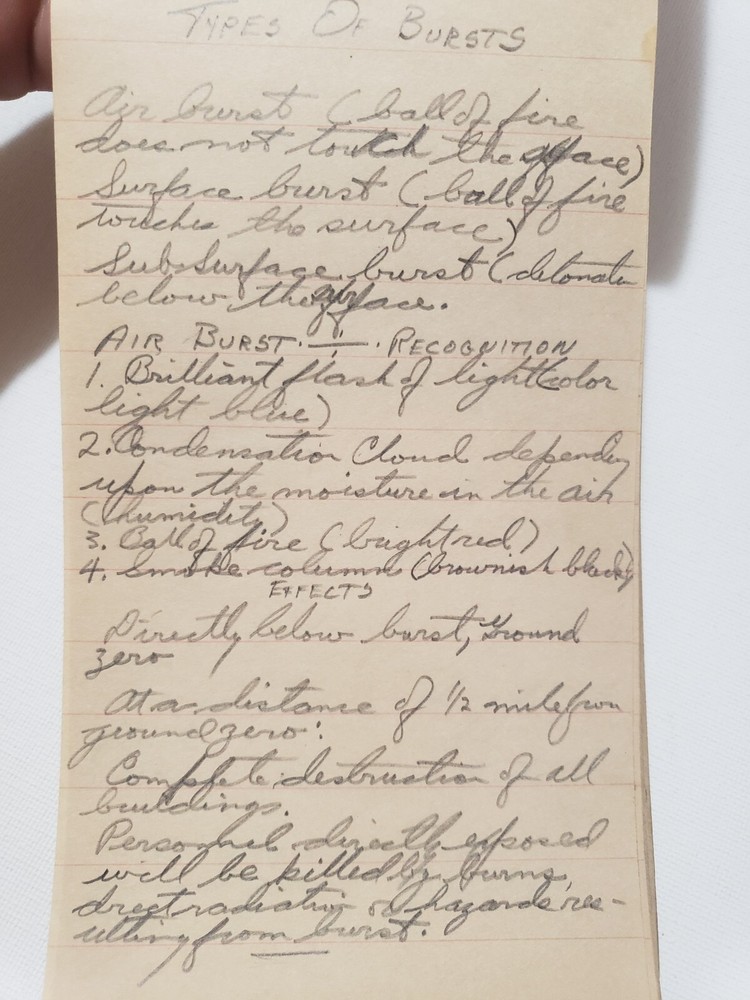 TYPES OF BURSTS
Air burst (ball of fire
does not touch the surface)
Surface burst (ball of fire
touches the surface)
Sub Surface burst (detonation
below the surface.
AIR BURST RECOGNITION
1. Brilliant flash of light (color
light blue)
2. Condensation Cloud depending
upon the moisture in the air
(humidity)
3. Ball of fire (bright red)
4. Smoke column (brownish black)
EFFECTS
Directly below burst, Ground
zero
At a distance of 1/2 mile from
ground zero:
Complete destruction of all
buildings.
Personnel directly exposed
will be killed by burns,
direct radiation or hazards res-
ulting from burst.